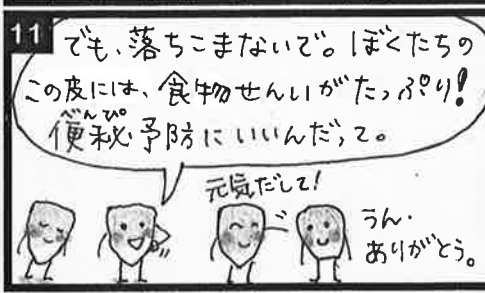 11
でも、落ちこまないで。ぼくたちの
この皮には、食物せんいがたっぷり!
べんぴ
便秘予防にいいんだって。
元気だして!
うん。
ありがとう。